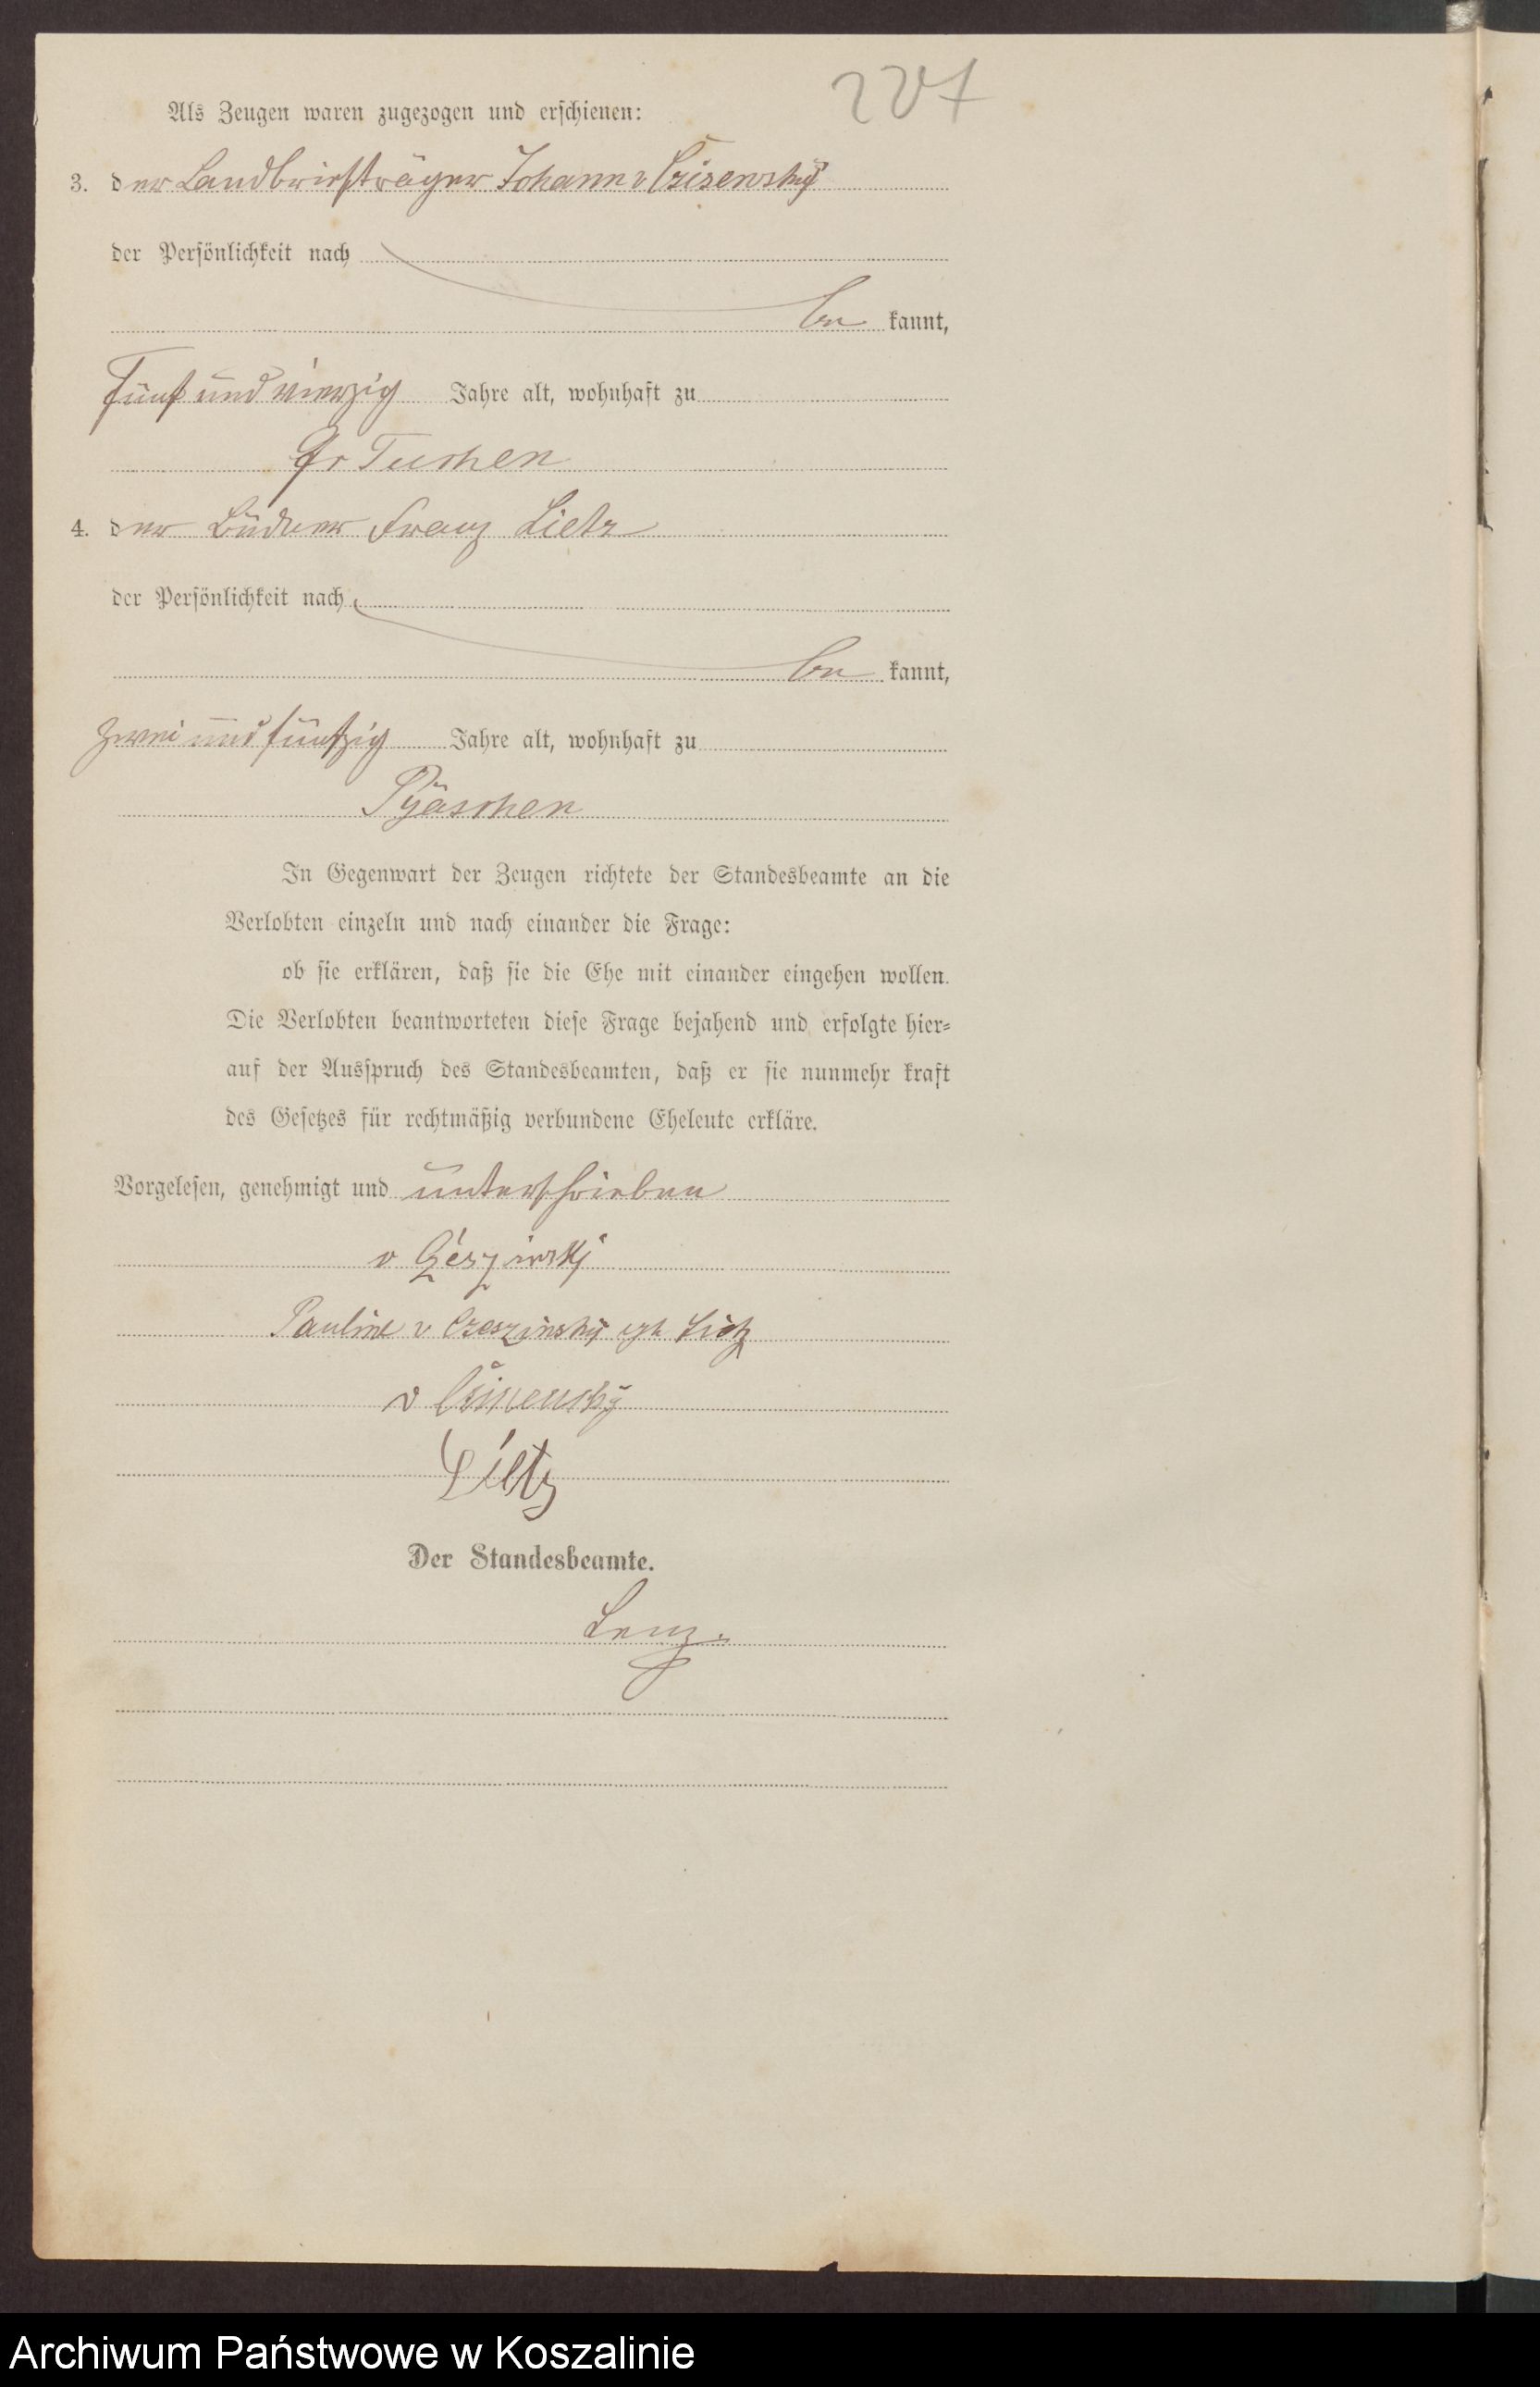 227
Als Zeugen waren zugezogen und erschienen:
3. der Landbriefträger Johann v Czisenský
der Persönlichkeit nach
be kannt,
fünf und vierzig Jahre alt, wohnhaft zu
Gr Tuchen
4. der Büdner Franz Lietz
der Persönlichkeit nach
be kannt,
zwei und fünfzig Jahre alt, wohnhaft zu
Pyaschen
In Gegenwart der Zeugen richtete der Standesbeamte an die
Verlobten einzeln und nach einander die Frage:
ob sie erklären, daß sie die Ehe mit einander eingehen wollen.
Die Verlobten beantworteten diese Frage bejahend und erfolgte hier-
auf der Ausspruch des Standesbeamten, daß er sie nunmehr kraft
des Gesetzes für rechtmäßig verbundene Eheleute erkläre.
Vorgelesen, genehmigt und unterschrieben
v
Pauline v Czeszinsky geb Lietz
v
Lietz
Der Standesbeamte.
Lenz.
Archiwum Państwowe w Koszalinie